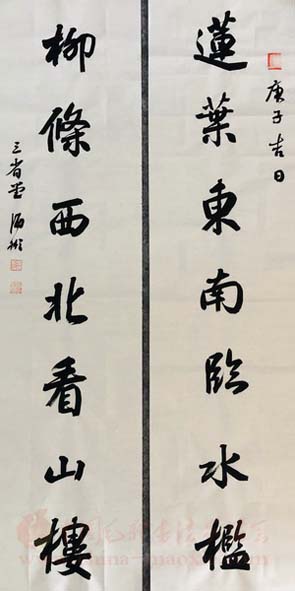 庚子吉日
蓮葉東南臨水檻
柳條西北看山樓
三省堂